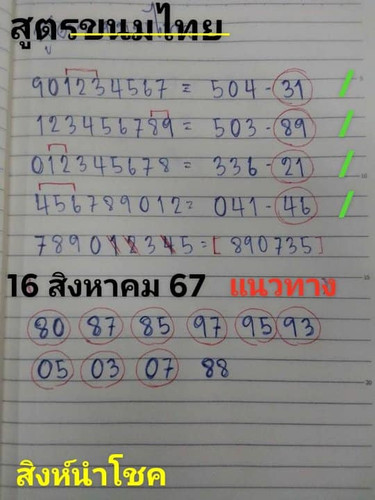 สูตรขนมไทย
901234567 = 504-31
123456789 = 503-89
012345678 = 336-21
456789012 = 041-46
789012345 = [890735]
16 สิงหาคม 67 แนวทาง
80 87 85 97 95 93
05 03 07 88
สิงห์นำโชค